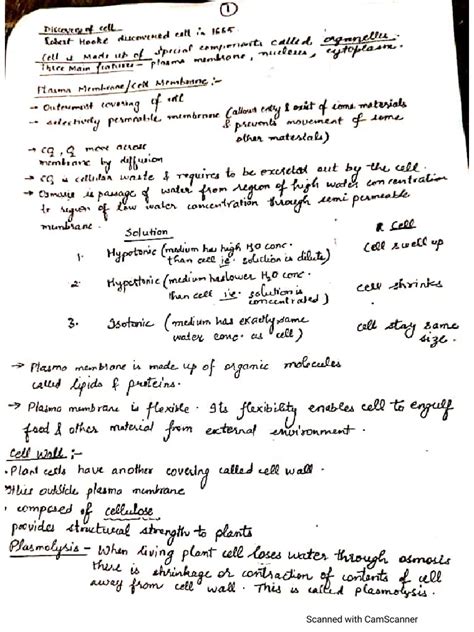 1
Discovery of cell
Robert Hooke discovered cell in 1665.
Cell is Made up of special components called organelles.
Three Main features - plasma membrane, nucleus, cytoplasm.
Plasma Membrane/Cell Membrane :-
→ Outermost covering of cell
→ selectively permeable membrane (allows entry & exit of some materials
& prevents movement of some
other materials)
→ CO2, O2 move across
membrane by diffusion
→ CO2 is cellular waste & requires to be excreted out by the cell.
→ Osmosis is passage of water from region of high water concentration
to region of low water concentration through semi permeable
membrane.
Solution Cell
1. Hypotonic (medium has high H2O conc. cell swell up
than cell ie. solution is dilute)
2. Hypertonic (medium has lower H2O conc. cell shrinks
than cell i.e. solution is
concentrated)
3. Isotonic (medium has exactly same cell stay same
water conc. as cell) size.
→ Plasma membrane is made up of organic molecules
called lipids & proteins.
→ Plasma membrane is flexible. Its flexibility enables cell to engulf
food & other material from external environment.
Cell Wall :-
• Plant cells have another covering called cell wall.
outside plasma membrane
• composed of cellulose
provides structural strength to plants
Plasmolysis - When living plant cell loses water through osmosis
there is shrinkage or contraction of contents of cell
away from cell wall. This is called plasmolysis.
Scanned with CamScanner